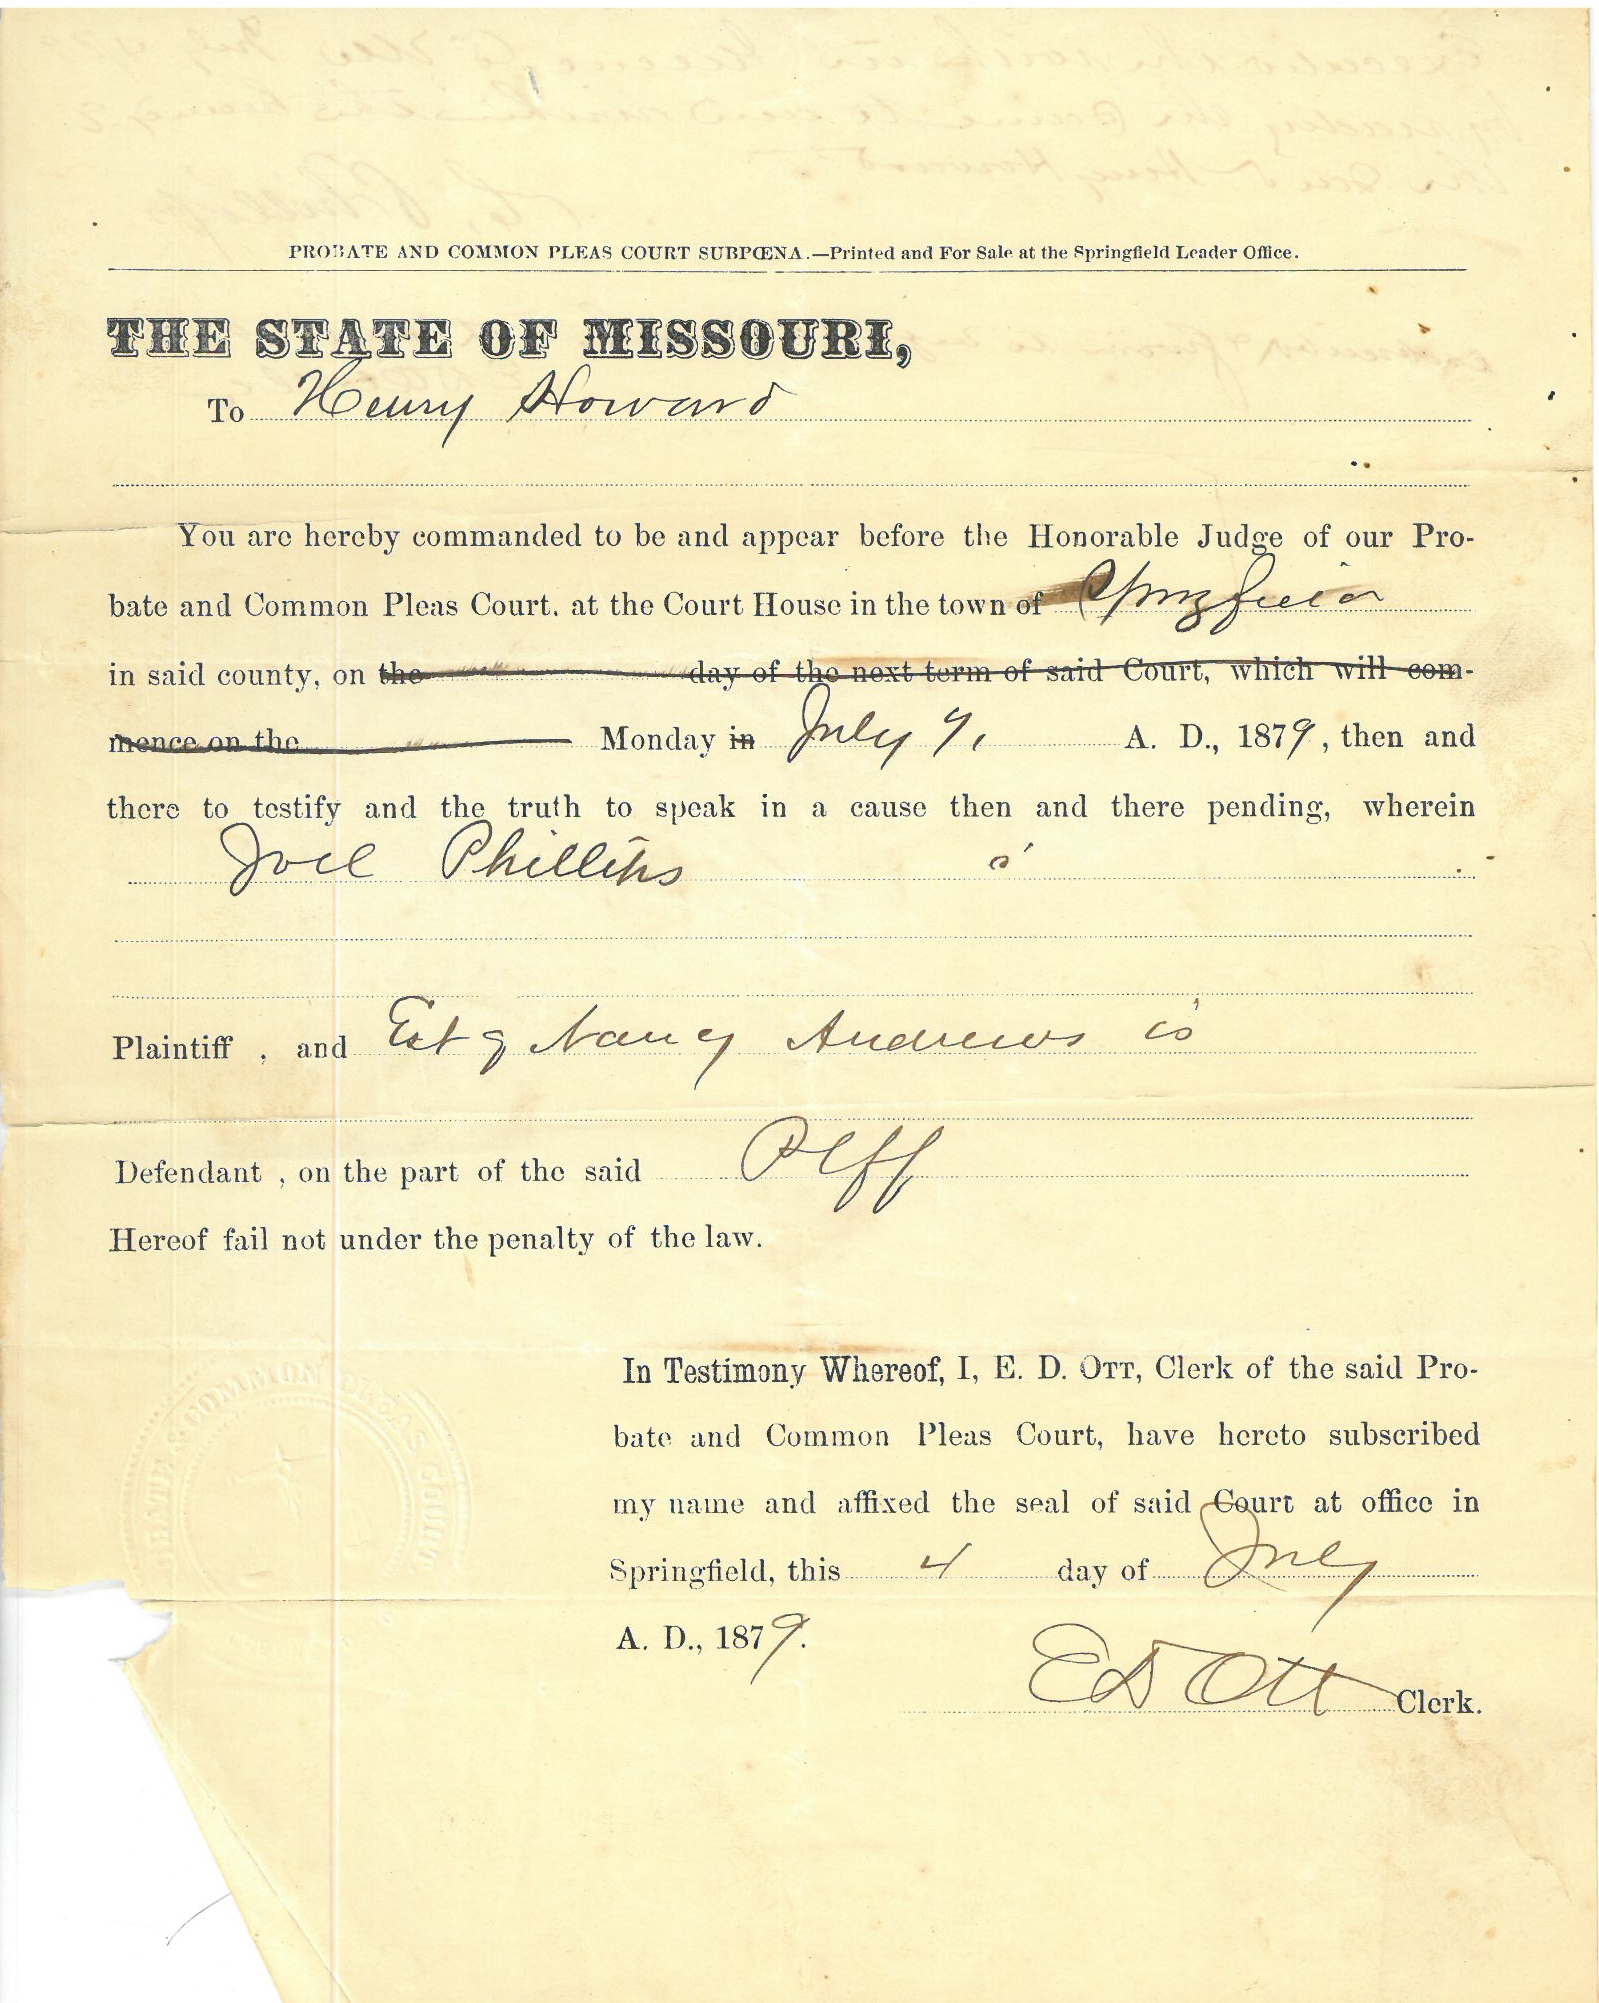 PROBATE AND COMMON PLEAS COURT SUBPŒNA.—Printed and For Sale at the Springfield Leader Office.
THE STATE OF MISSOURI,
To Henry Howard
You are hereby commanded to be and appear before the Honorable Judge of our Pro-
bate and Common Pleas Court, at the Court House in the town of Springfield
in said county, on the day of the next term of said Court, which will com-
mence on the Monday in July 7, A. D., 1879, then and
there to testify and the truth to speak in a cause then and there pending, wherein
Joel Phillips is
Plaintiff , and Est of Nancy Andrews is
Defendant , on the part of the said Plff
Hereof fail not under the penalty of the law.
In Testimony Whereof, I, E. D. OTT, Clerk of the said Pro-
bate and Common Pleas Court, have hereto subscribed
my name and affixed the seal of said Court at office in
Springfield, this 4 day of July
A. D., 1879.
E D Ott Clerk.
COMMON PLEAS COURT